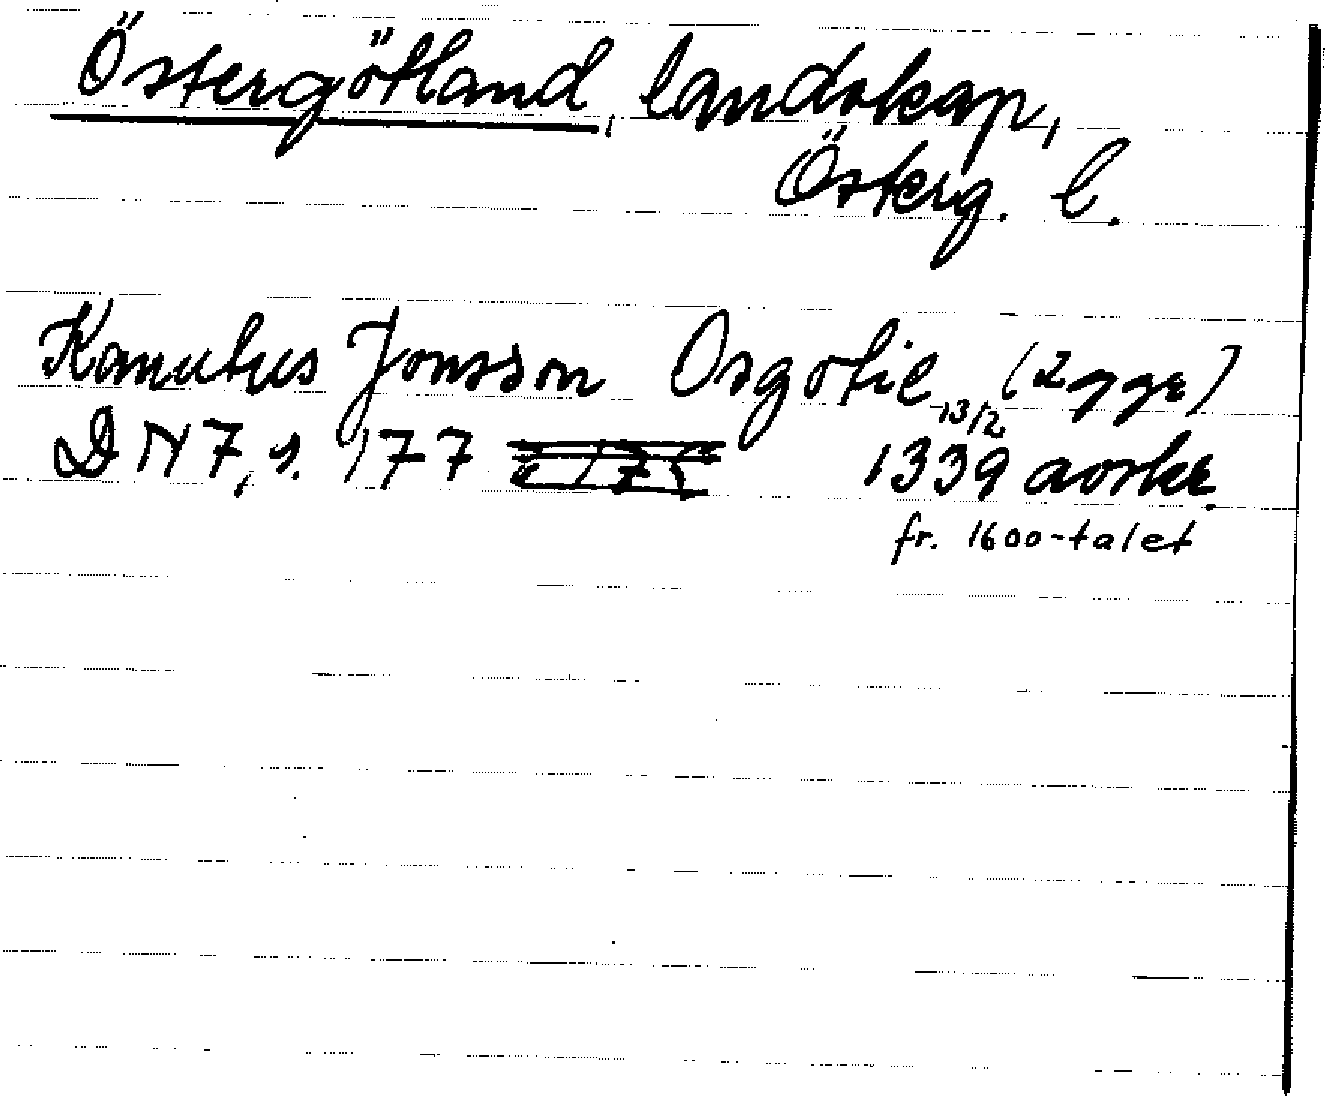 Östergötland, landskap,
Österg. l.
Kanutus Jonsson Osgotie (2 ggr)
DN 7, s. 177 13/2 1339 avskr.
fr. 1600-talet